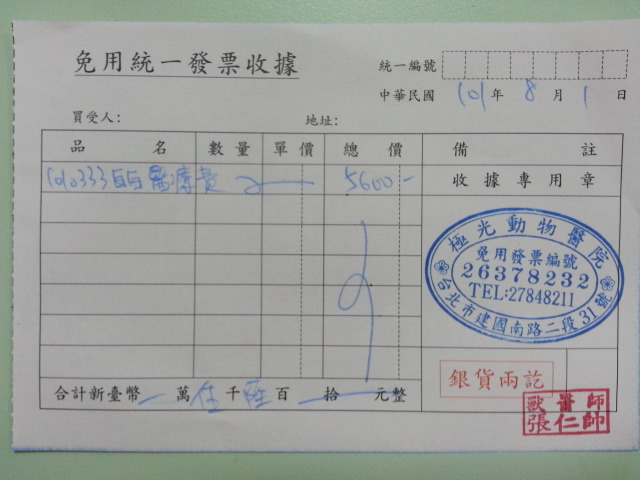 免用統一發票收據
統一編號
中華民國 101 年 8 月 1 日
買受人： 地址：
品名 數量 單價 總價 備註
醫療費 5600- 收據專用章
極光動物醫院
免用發票編號
26378232
TEL:27848211
台北市建國南路二段31號
銀貨兩訖
合計新臺幣 萬 伍 千 陸 百 拾 元整
獸醫師
張仁帥